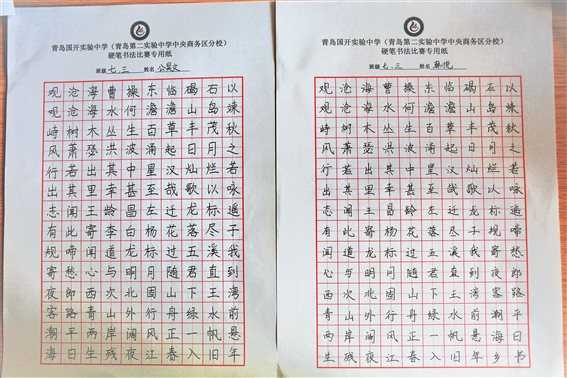 青岛国开实验中学（青岛第二实验中学中央商务区分校）
硬笔书法比赛专用纸
班级 七.三 姓名
观沧海曹操东临碣石以
观沧海水何澹澹山岛竦
峙树木丛生百草丰茂秋
风萧瑟洪波涌起日月之
行若出其中星汉灿烂若
出其里幸甚至哉歌以咏
志闻王龄昌左迁龙标遥
有此寄李白杨花落尽子
规啼闻道龙标过五溪我
寄愁心与明月随君直到
夜郎西次北固山下王湾
客路青山外行舟绿水前
潮平两岸阔风正一帆悬
海日生残夜江春入旧年
青岛国开实验中学（青岛第二实验中学中央商务区分校）
硬笔书法比赛专用纸
班级 七.三 姓名
观沧海曹操东临碣石以
观沧海水何澹澹山岛竦
峙树木丛生百草丰茂秋
风萧瑟洪波涌起日月之
行若出其中星汉灿烂若
出其里幸甚至哉歌以咏
志闻王昌龄左迁龙标遥
有此寄杨花落尽子规啼
闻道龙标过五溪我寄愁
心与明月随君直到夜郎
西次北固山下王湾客路
青山外行舟绿水前潮平
两岸阔风正一帆悬海日
生残夜江春入旧年乡书